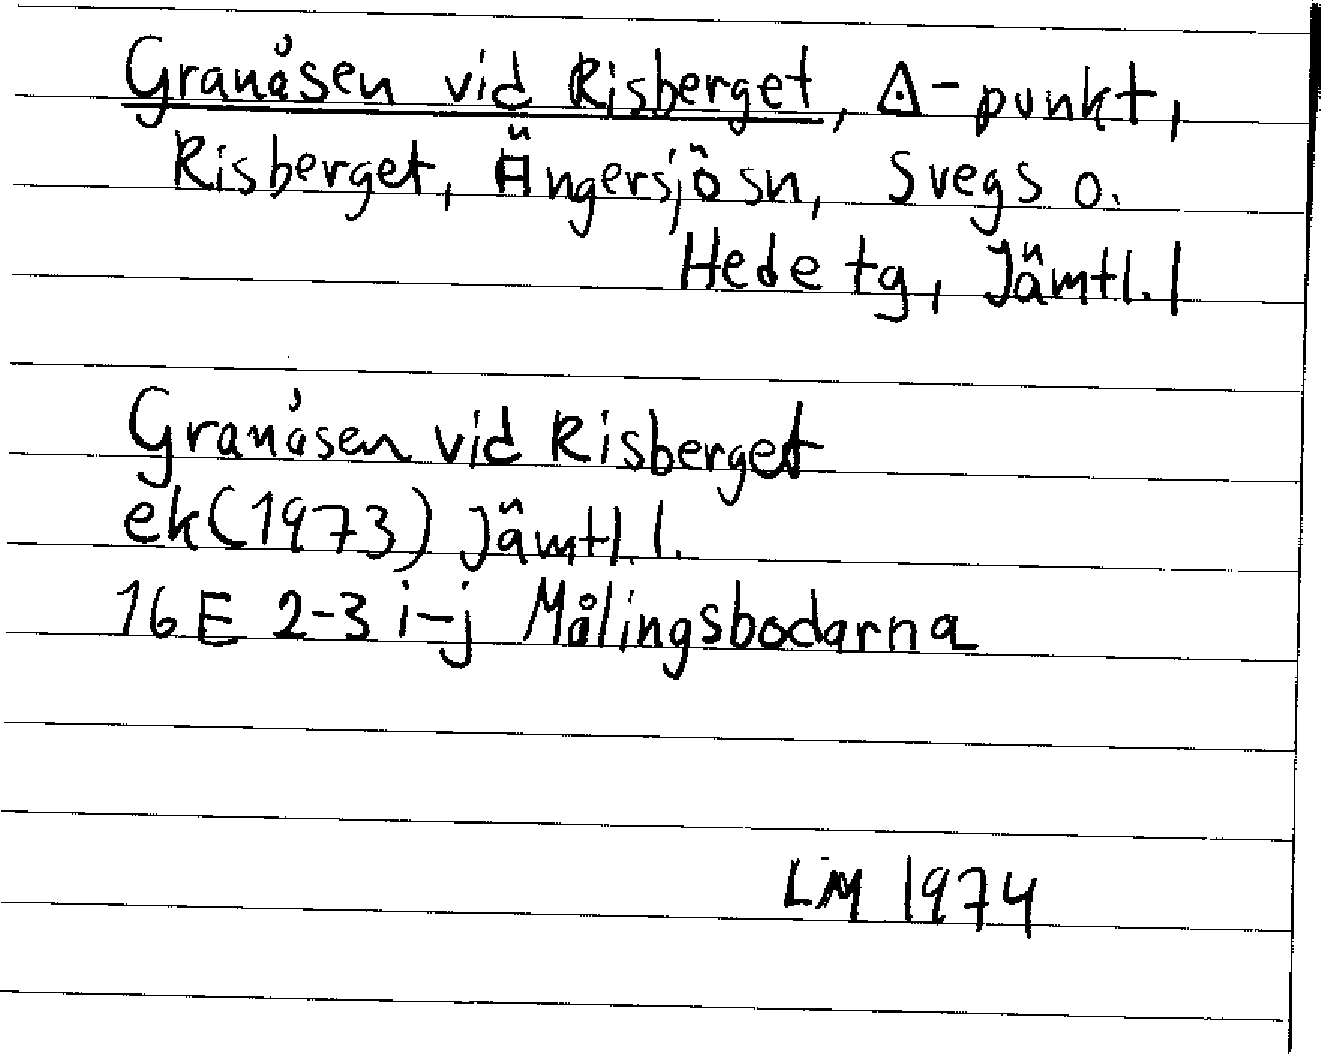 Granåsen vid Risberget, △-punkt,
Risberget, Ängersjösn, Svegs o.
Hede tg, Jämtl. l
Granåsen vid Risberget
ek (1973) Jämtl. l.
16 E 2-3 i-j Målingsbodarna
LiM 1974